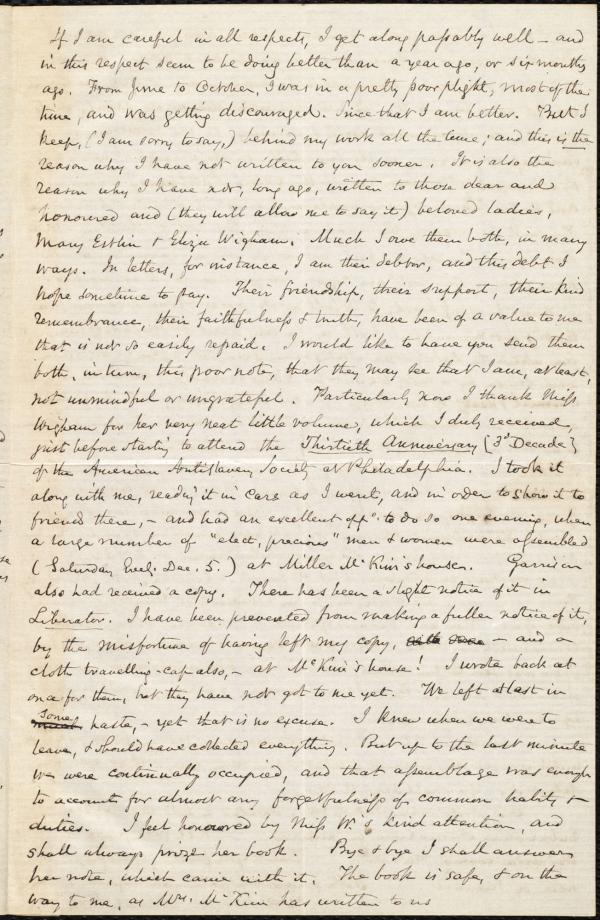 If I am careful in all respects, I get along passably well - and
in this respect seem to be doing better than a year ago, or six months
ago. From June to October, I was in a pretty poor plight, most of the
time, and was getting discouraged. Since that I am better. But I
keep, (I am sorry to say,) behind my work all the time; and this is the
reason why I have not written to you sooner. It is also the
reason why I have not, long ago, written to those dear and
honoured and (they will allow me to say it) beloved ladies,
Mary Estlin & Eliza Wigham. Much I owe them both, in many
ways. In letters, for instance, I am their debtor, and this debt I
hope sometime to pay. Their friendship, their support, their kind
remembrance, their faithfulness & truth, have been of a value to me
that is not so easily repaid. I would like to have you send them
both, in turn, this poor note, that they may see that I am, at least,
not unmindful or ungrateful. Particularly now I thank Miss
Wigham for her very neat little volume, which I duly received,
just before starting to attend the Thirtieth Anniversary (3d Decade)
of the American Antislavery Society at Philadelphia. I took it
along with me, readg it in cars as I went, and in order to show it to
friends there, - and had an excellent oppy. to do so one evening, when
a large number of "elect, precious" men & women were assembled
(Saturday Eveg. Dec. 5.) at Miller McKim's house. Garrison
also had received a copy. There has been a slight notice of it in
Liberator. I have been prevented from making a fuller notice of it,
by the misfortune of having left my copy, - and a
cloth travelling-cap also, - at McKim's house! I wrote back at
once for them, but they have not got to me yet. We left at last in
some haste, - yet that is no excuse. I knew when we were to
leave, & should have collected everything. But up to the last minute
we were continually occupied, and that assemblage was enough
to account for almost any forgetfulness of common habits &
duties. I feel honoured by Miss W.'s kind attention, and
shall always prize her book. Bye & bye I shall answer
her note, which came with it. The book is safe, & on the
way to me, as Mrs. McKim has written to us